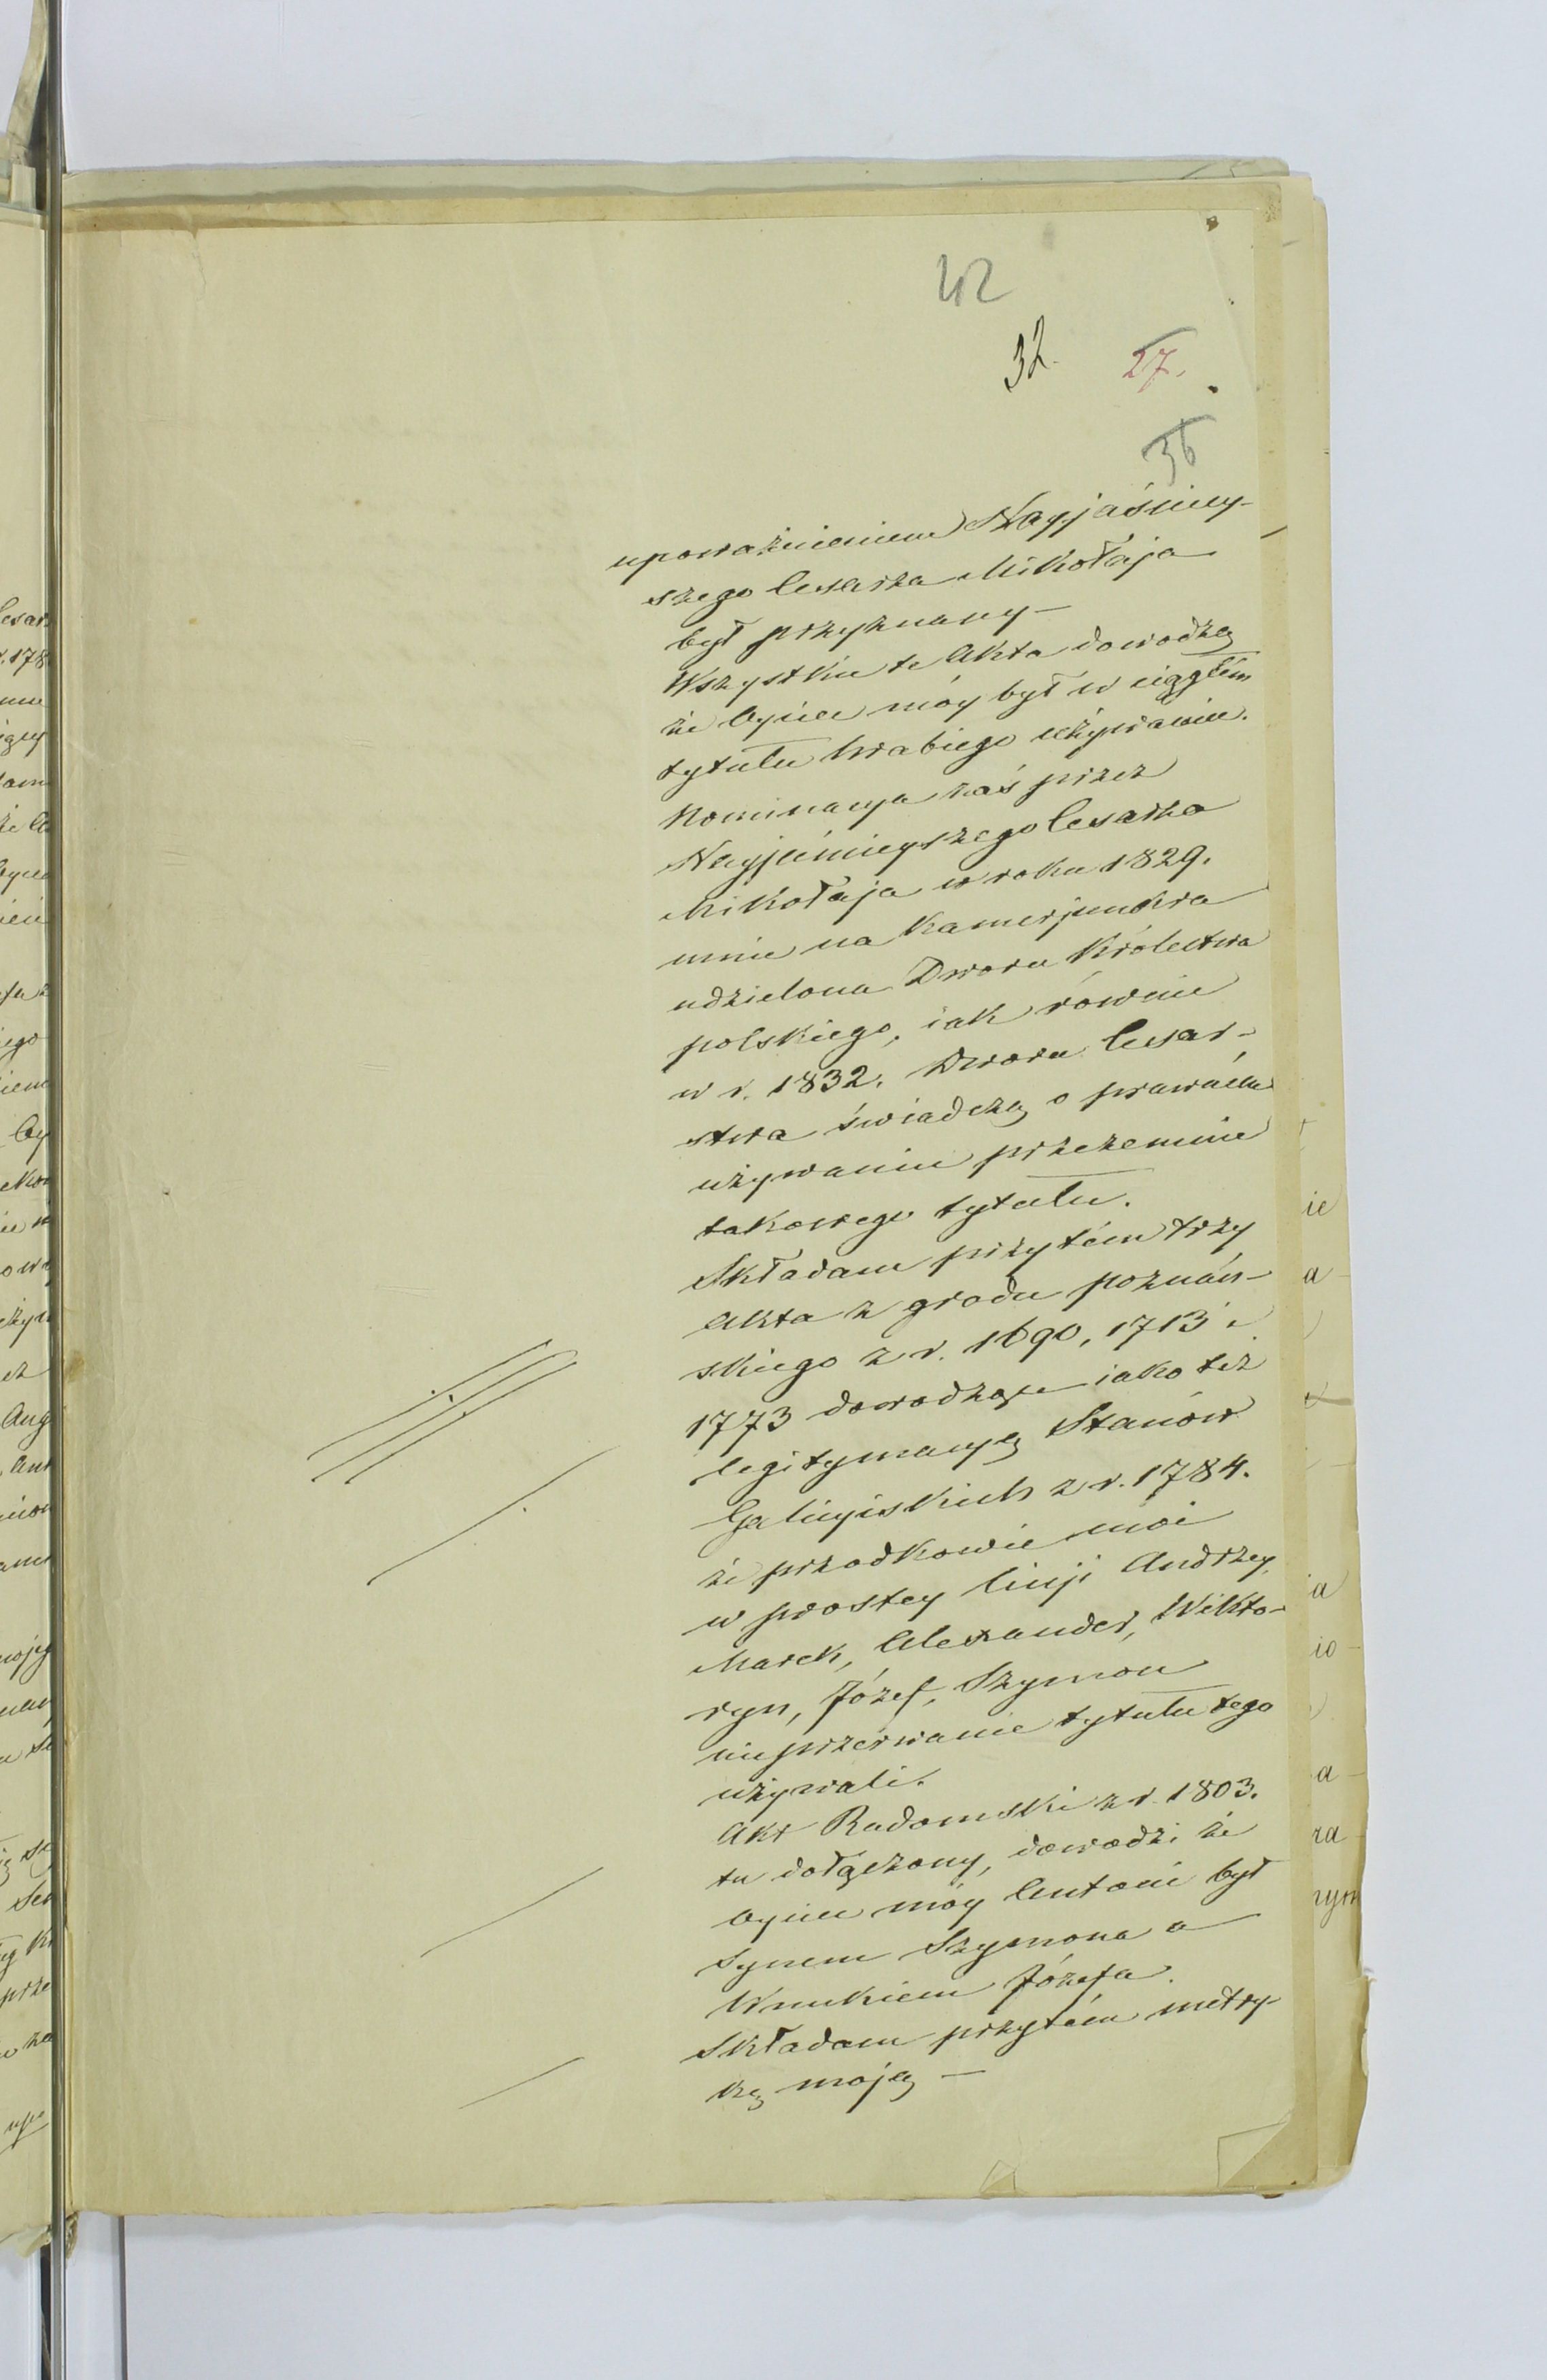 42
32. 27.
36
upoważnieniem Nayjaśniey-
szego Cesarza Mikołaja
był przyznany —
Wszystkie te Akta dowodzą
że Oyciec móy był w ciągłém
tytułu hrabiego używaniu.
Nominacya zaś przez
Nayjaśnieyszego Cesarza
Mikołaja w roku 1829.
mnie na Kamerjunkra
udzielona Dworu Królestwa
polskiego, iak równie
w r. 1832. Dworu Cesar-
stwa świadczą o prawném
używaniu przezemnie
takowego tytułu.
Składam przytém trzy
Akta z grodu poznań-
skiego z r. 1690, 1713 i
1773 dowodzące iako też
legitymacyą Stanów
Galicyiskich z r. 1784.
że przodkowie moi
w prostey linji Andrzey,
Marek, Alexander, Wikto-
ryn, Józef, Szymon
nieprzerwanie tytułu tego
używali.
Akt Radomski z r. 1803.
tu dołączony, dowodzi że
Oyciec móy Antoni był
Synem Szymona a
Wnukiem Józefa.
Składam przytém metry-
kę moję —